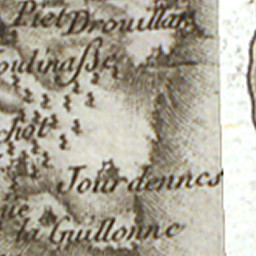 Piet Drouillars
oulinaſse
chot
Jourdennes
la Guillonne